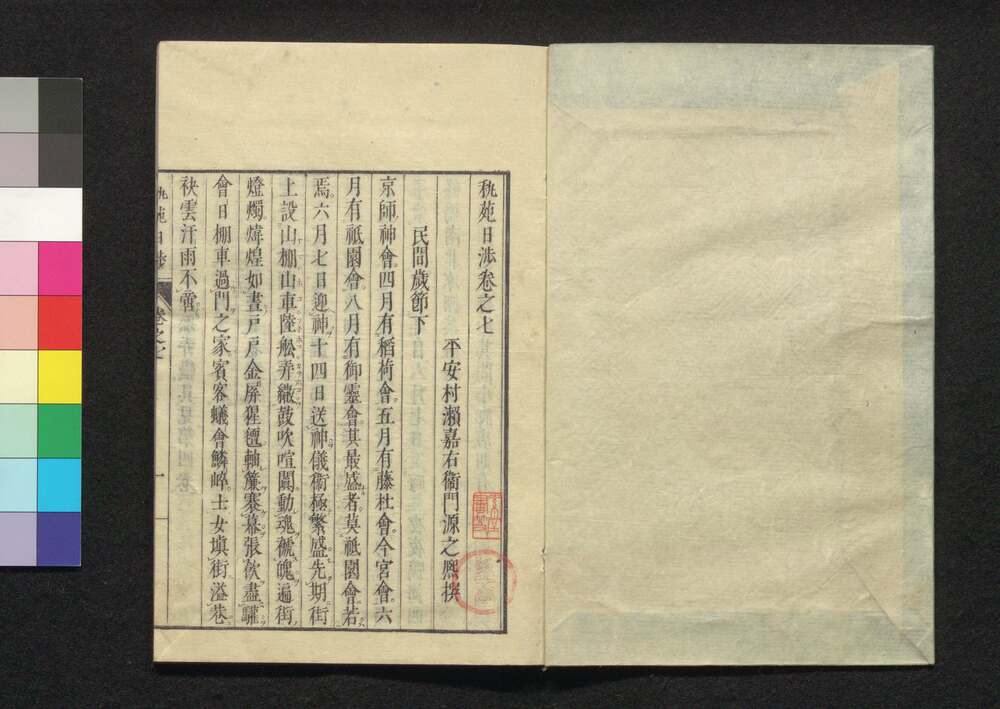 秇苑日渉卷之七
平安村瀨嘉右衞門源之熈撰
民間歲節下
京師神會四月有稻荷會五月有藤杜會今宮會六
月有祇園會八月有御靈會其最盛者莫祇園會若
焉六月七日迎神十四日送神儀衞極繁盛先期街
上設山棚山車陸舩弄繖鼓吹喧闐動魂褫魄遍街
燈燭煒煌如晝戸戸金屏猩氊軸簾褰幕張飮盡驩
會日棚車過門之家賓客蟻會鱗崒士女塡街溢巷
袂雲汗雨不啻
秇苑日渉
卷之七
一